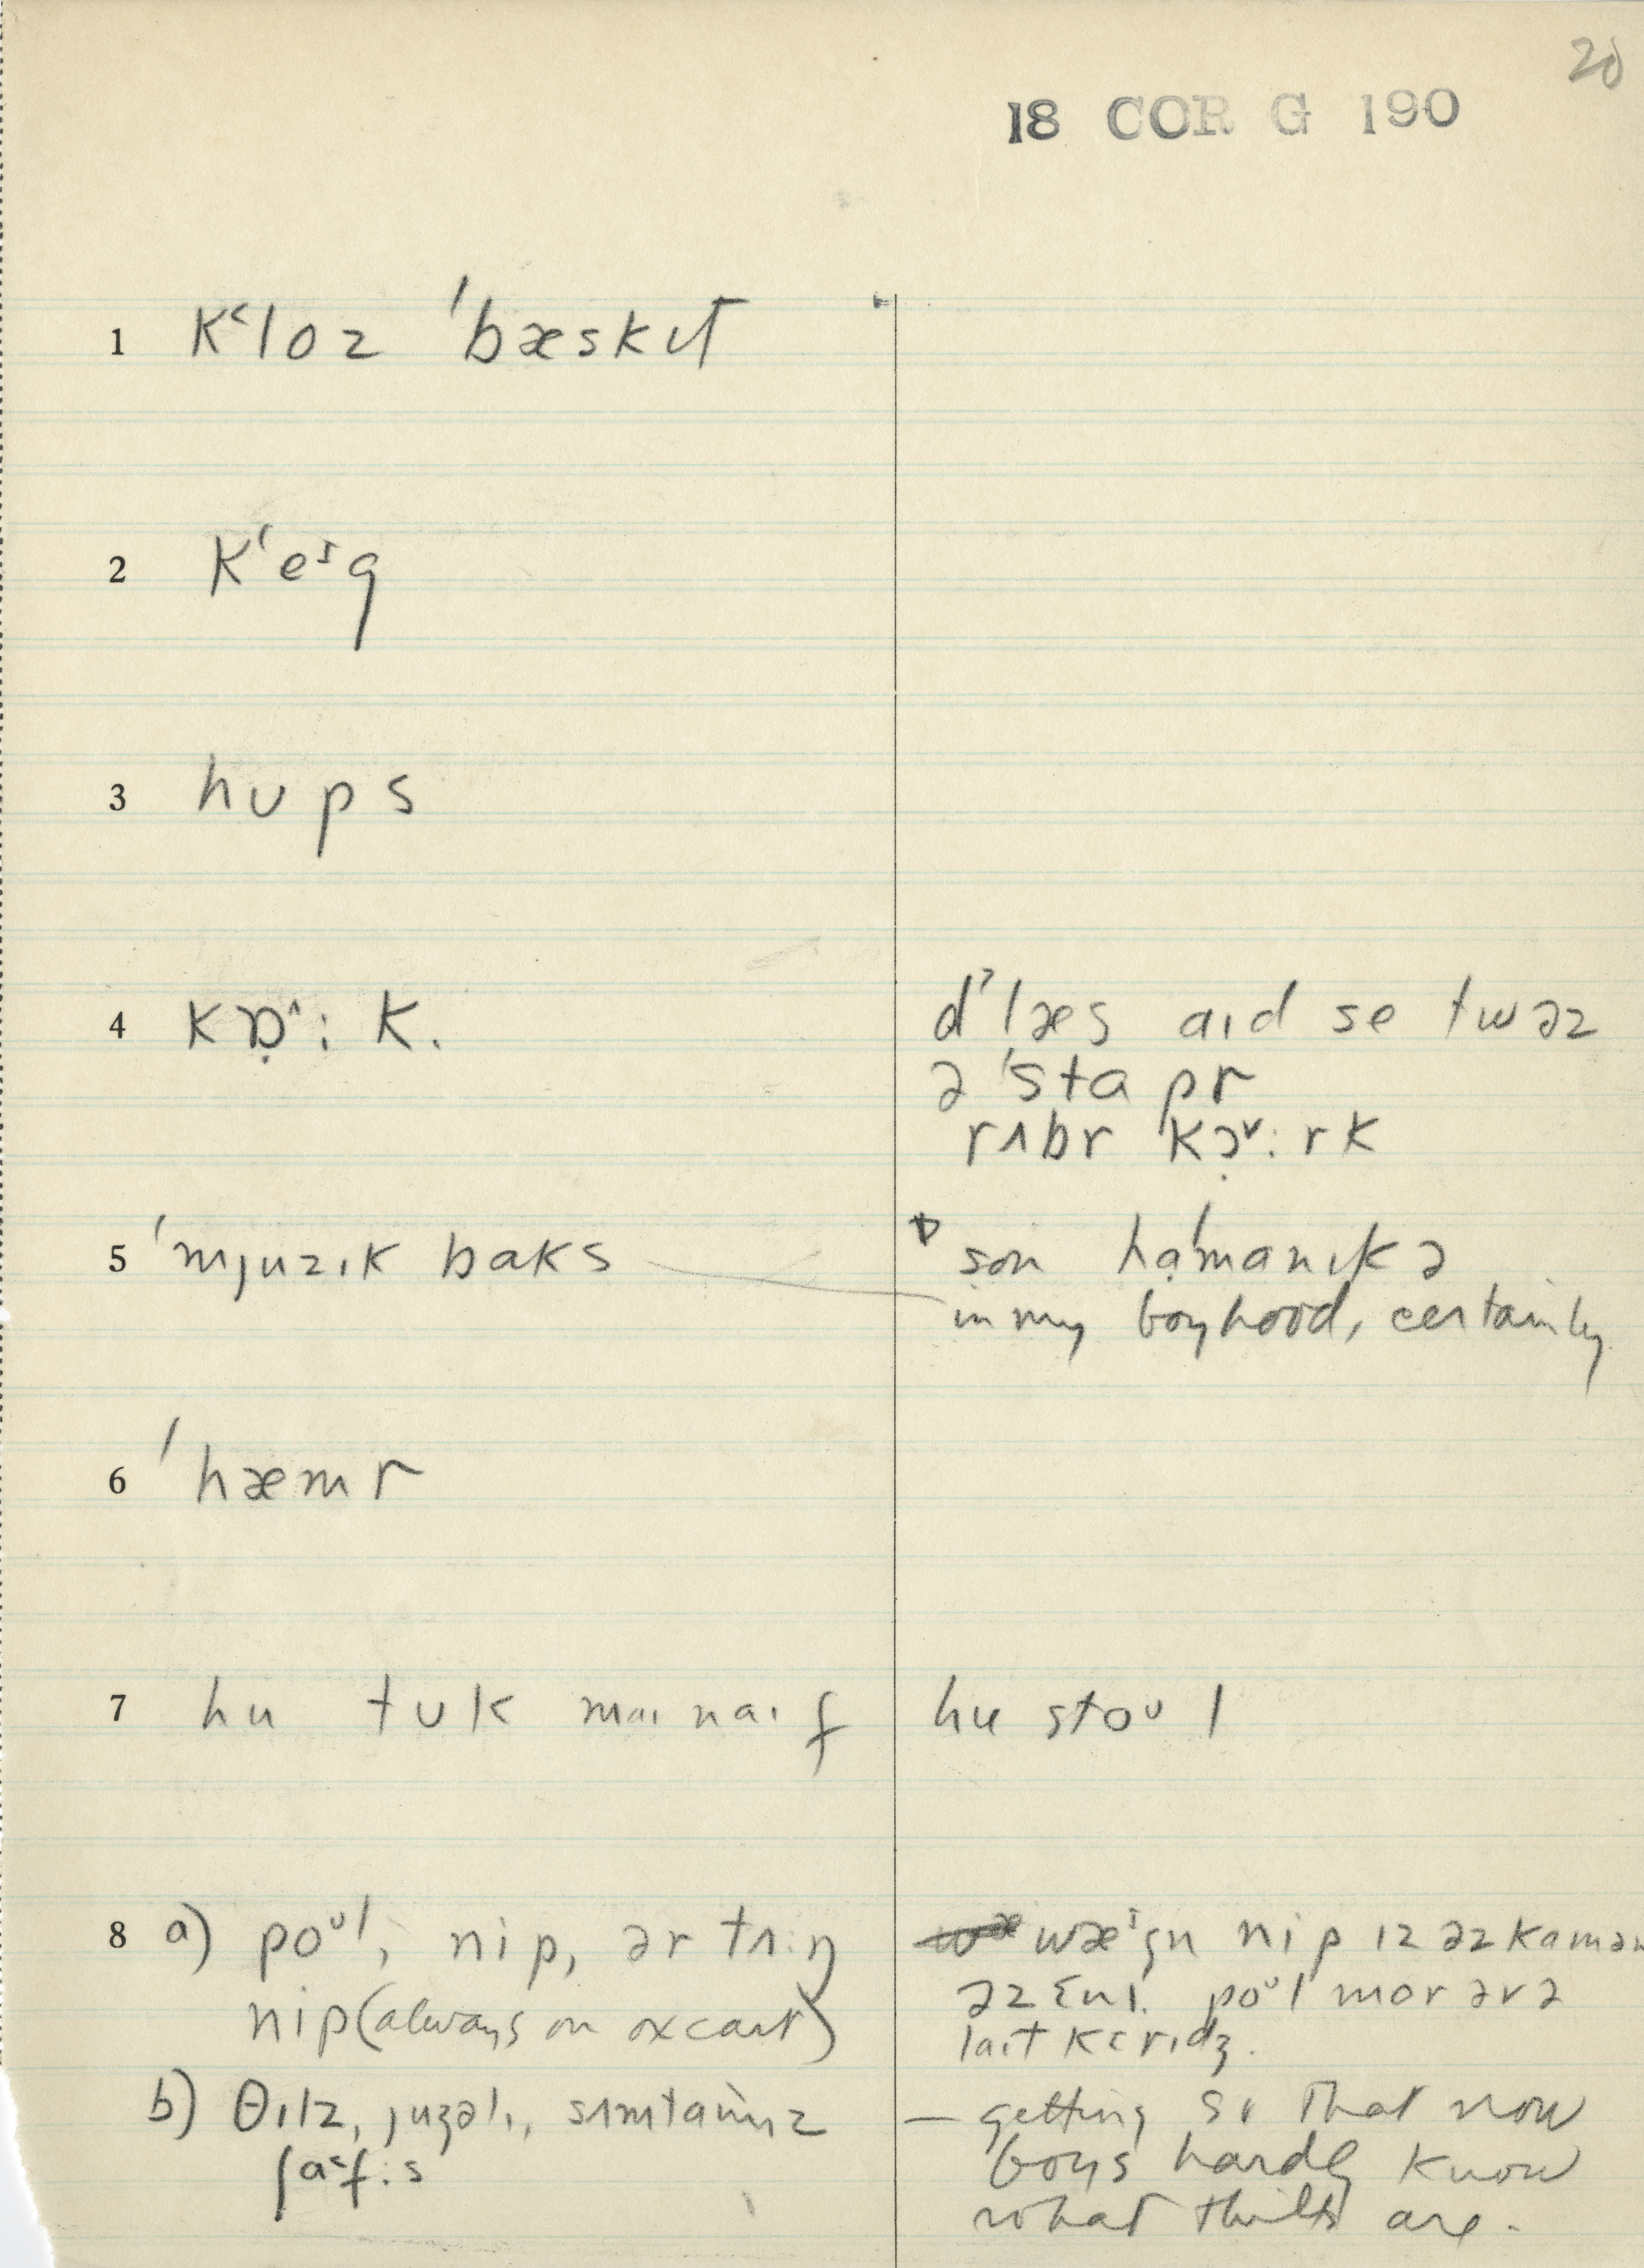 20
18 COR G 190
1 Kʻloz ˈbæskɪt
2 Kʻeᶦg
3 hʊps
4 kɒ̣^: k. dˀlæs aɪd se twəz
ə ˈstapr
rʌbr kɔ̣ˇ: rk
5 ˈmjuzɪk baks son hạˈmanɪkə
in my boyhood, certainly
6 ˈhæmr
7 hu tʊk maɪ naɪf hu stoᶷl
8 a) poᶷl, nip, ər tʌ:ŋ wæᶦgn nip ɪz əz kamən
nip (always on oxcart) əz ɛnɪ. poᶷl mor ərə
laɪt kɛrɪdʒ.
b) θɪlz, juʒəlɪ, sʌmtaɪmz — getting so that now
ʃaˤf:s boys hardly know
what thills are.